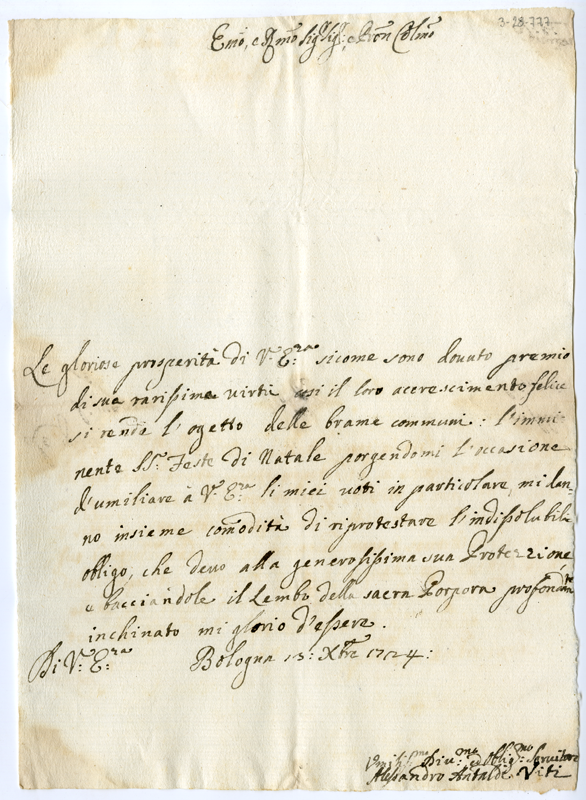 3-28-777
Emo, e Rmo Sig:, Sig:, e Pron Colmo
Le gloriose prosperità di V: E:za sicome sono douuto premio
di sue rarissime virtù cosi il loro acrescimento felice
si rende l'ogetto delle brame communi: l'immi-
nente SS: Feste di Natale porgendomi l'occasione
d'umiliare à V: E:za li miei uoti in particolare, mi dan-
no insieme comodità di riprotestare l'indissolubile
obligo, che deuo alla generosissima sua Protezzione,
e bacciandole il Lembo della sacra Porpora profondte
inchinato mi glorio d'essere.
Di V: E:za Bologna 13: Xbre 1724:
Vmiliss:mo Diu:mo ed obblig:mo Seruitore
Alessandro Antaldi Viti